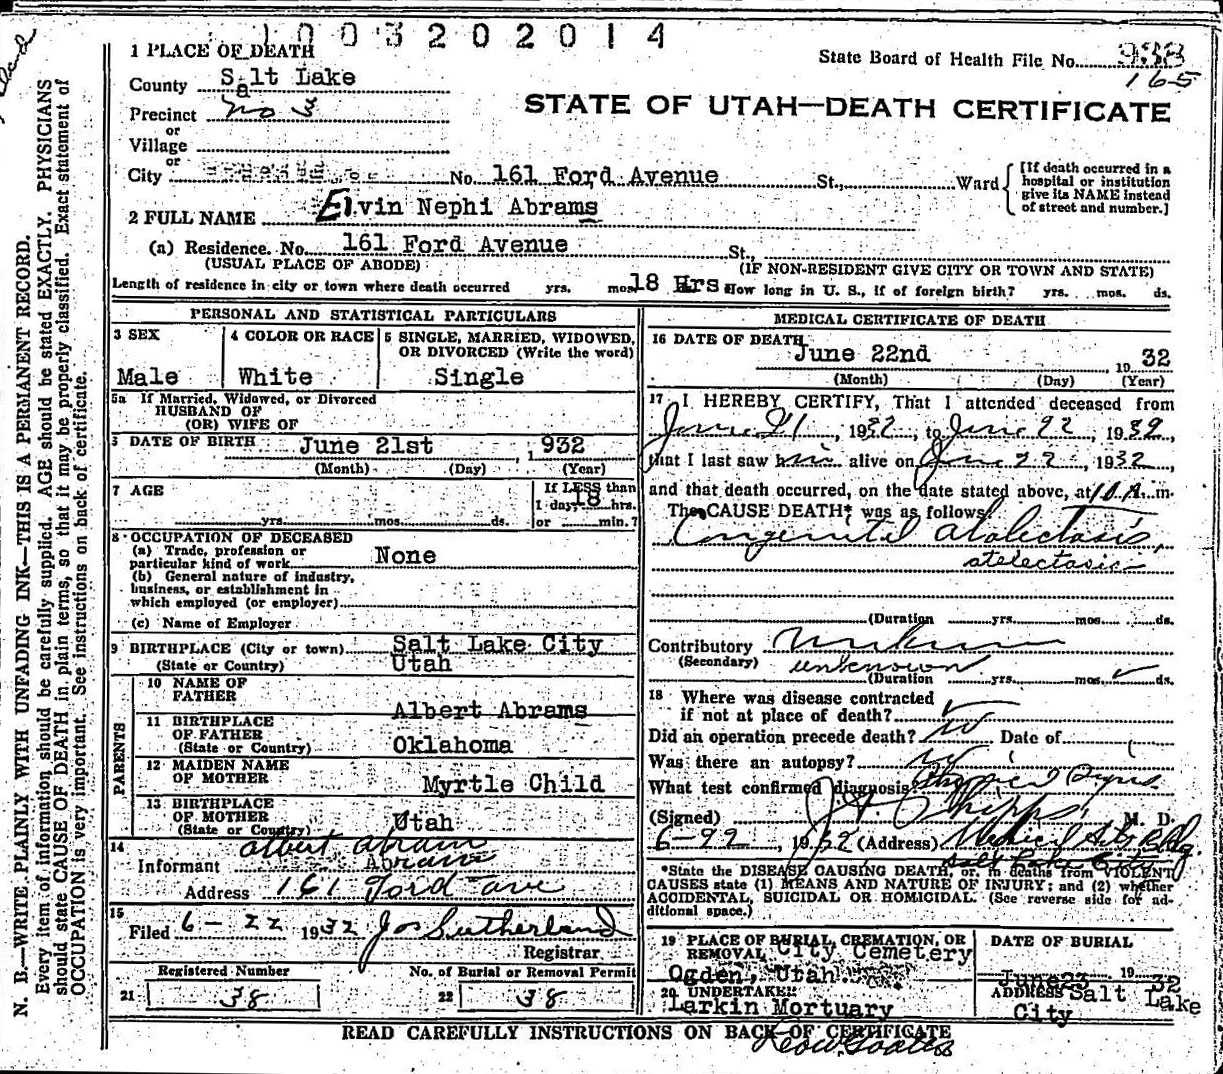 1003202014
1 PLACE OF DEATH
State Board of Health File No. 933
165
County Salt Lake
a
STATE OF UTAH—DEATH CERTIFICATE
Precinct No 3
or
Village
or
City No. 161 Ford Avenue St., Ward
[If death occurred in a hospital or institution give its NAME instead of street and number.]
2 FULL NAME Elvin Nephi Abrams
(a) Residence. No. 161 Ford Avenue St.,
(USUAL PLACE OF ABODE) (IF NON-RESIDENT GIVE CITY OR TOWN AND STATE)
Length of residence in city or town where death occurred yrs. mos. 18 Hrs. How long in U. S., if of foreign birth? yrs. mos. ds.
PERSONAL AND STATISTICAL PARTICULARS
3 SEX
Male
4 COLOR OR RACE
White
5 SINGLE, MARRIED, WIDOWED,
OR DIVORCED (Write the word)
Single
5a If Married, Widowed, or Divorced
HUSBAND OF
(OR) WIFE OF
6 DATE OF BIRTH June 21st , 1932
(Month) (Day) (Year)
7 AGE
yrs. mos. ds.
If LESS than
1 day, 18 hrs.
or min.?
8 OCCUPATION OF DECEASED
(a) Trade, profession or
particular kind of work None
(b) General nature of industry,
business, or establishment in
which employed (or employer)
(c) Name of Employer
9 BIRTHPLACE (City or town) Salt Lake City
(State or Country) Utah
PARENTS
10 NAME OF
FATHER Albert Abrams
11 BIRTHPLACE
OF FATHER
(State or Country) Oklahoma
12 MAIDEN NAME
OF MOTHER Myrtle Child
13 BIRTHPLACE
OF MOTHER
(State or Country) Utah
14 albert abram
Informant Abram
Address 161 Ford ave
15
Filed 6-22 1932 Jos Sutherland
Registrar
Registered Number No. of Burial or Removal Permit
21 38 22 38
MEDICAL CERTIFICATE OF DEATH
16 DATE OF DEATH
June 22nd , 1932
(Month) (Day) (Year)
17 I HEREBY CERTIFY, That I attended deceased from
June 21, 1932, to June 22, 1932,
that I last saw him alive on June 22, 1932,
and that death occurred, on the date stated above, at 10 A. m.
The CAUSE DEATH* was as follows:
Congenital atalectasis,
atelectasis
(Duration yrs. mos. ds.
Contributory unknown
(Secondary) unknown
(Duration yrs. mos. ds.
18 Where was disease contracted
if not at place of death?
Did an operation precede death? no Date of
Was there an autopsy? no
What test confirmed diagnosis? Physical Signs.
(Signed) J. H. Phipps, M. D.
6-22, 1932 (Address) Medical Arts Bldg.
Salt Lake City
*State the DISEASE CAUSING DEATH, or, in deaths from VIOLENT
CAUSES state (1) MEANS AND NATURE OF INJURY; and (2) whether
ACCIDENTAL, SUICIDAL OR HOMICIDAL. (See reverse side for ad-
ditional space.)
19 PLACE OF BURIAL, CREMATION, OR
REMOVAL City Cemetery
Ogden, Utah
DATE OF BURIAL
June23 1932
20 UNDERTAKER
Larkin Mortuary
ADDRESS Salt Lake
City
READ CAREFULLY INSTRUCTIONS ON BACK OF CERTIFICATE
N. B.—WRITE PLAINLY WITH UNFADING INK—THIS IS A PERMANENT RECORD.
Every item of information should be carefully supplied. AGE should be stated EXACTLY. PHYSICIANS
should state CAUSE OF DEATH in plain terms, so that it may be properly classified. Exact statement of
OCCUPATION is very important. See instructions on back of certificate.